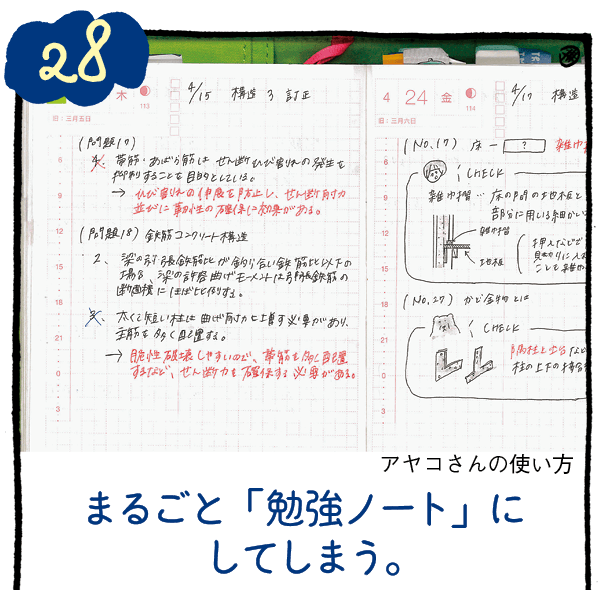 28
木
113
旧：三月五日
4/15 構造 3 訂正
(問題17)
4. 帯筋・あばら筋は せん断ひび割れの発生を
抑制することを目的としている。
→ ひび割れの伸展を防止し、せん断耐力
並びに靭性の確保に効果がある。
(問題18) 鉄筋コンクリート構造
2. 梁の引張鉄筋比が釣り合い鉄筋比以下の
場合、梁の許容曲げモーメントは引張鉄筋の
断面積にほぼ比例する。
3. 太くて短い柱は曲げ耐力を増す必要があり、
主筋を多く配置する。
→ 脆性破壊しやすいので、帯筋を多く配置
するなど、せん断力を確保する必要がある。
8
9
12
15
18
21
0
3
4 24 金
114
旧：三月六日
4/17 構造
(No.17) 床 ー ? 雑巾
CHECK
雑巾摺… 床の間の地板と
部分に用いる細かい
雑巾摺
地板
押入などで
(No.27) かど金物とは
CHECK
隅柱と土台など
柱の上下の接合
6
9
12
15
18
21
0
3
アヤコさんの使い方
まるごと「勉強ノート」に
してしまう。